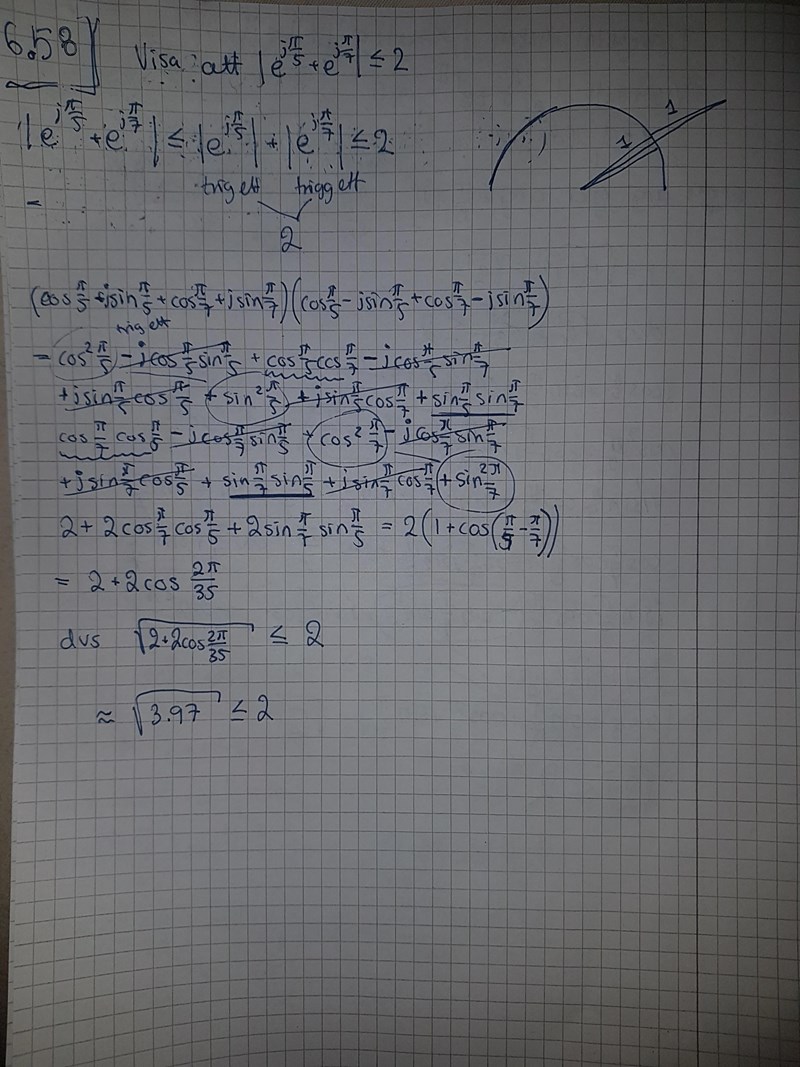 6.58] Visa att |e^{jπ/5} + e^{jπ/7}| ≤ 2
|e^{jπ/5} + e^{jπ/7}| ≤ |e^{jπ/5}| + |e^{jπ/7}| ≤ 2
1 1
trig ett trigg ett
2
(cos π/5 + jsin π/5 + cos π/7 + jsin π/7)(cos π/5 - jsin π/5 + cos π/7 - jsin π/7)
trig ett
= cos² π/5 - jcos π/5 sin π/5 + cos π/5 cos π/7 - jcos π/5 sin π/7
+ jsin π/5 cos π/5 + sin² π/5 + jsin π/5 cos π/7 + sin π/5 sin π/7
cos π/7 cos π/5 - jcos π/7 sin π/5 + cos² π/7 - jcos π/7 sin π/7
+ jsin π/7 cos π/5 + sin π/7 sin π/5 + jsin π/7 cos π/7 + sin² π/7
2 + 2cos π/7 cos π/5 + 2sin π/7 sin π/5 = 2(1 + cos(π/5 - π/7))
= 2 + 2cos 2π/35
dvs √(2+2cos 2π/35) ≤ 2
≈ √3.97 ≤ 2